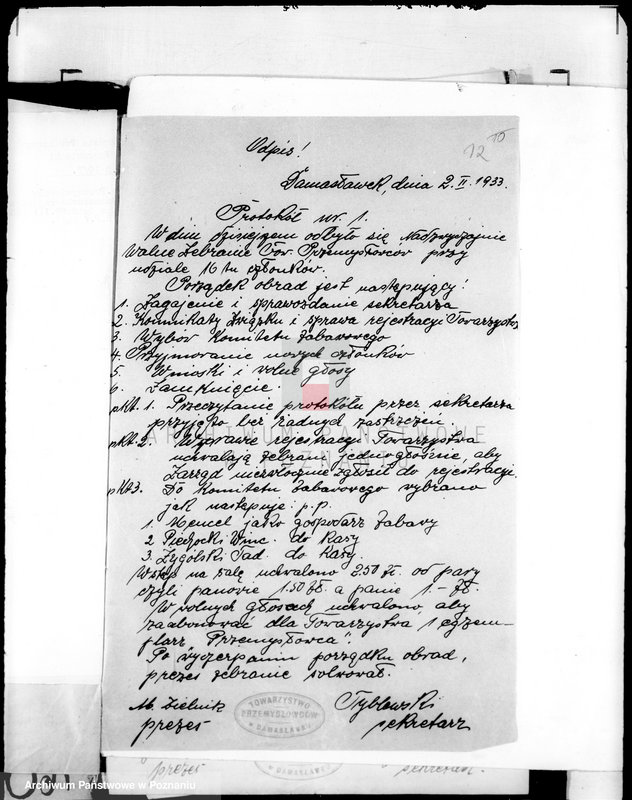 Odpis!
12 10
Damasławek, dnia 2. II. 1933.
Protokół nr. 1.
W dniu dzisiejszem odbyło się Nadzwyczajnie
Walne Zebranie Tow. Przemysłowców przy
udziale 16 tu członków.
Porządek obrad jest następujący:
1. Zagajenie i sprawozdanie sekretarza
2. Komunikaty Związku i sprawa rejestracyi Towarzystw
3. Wybór Komitetu zabawowego
4. Przyjmowanie nowych członków
5. Wnioski i wolne głosy
6. Zamknięcie.
pkt. 1. Przeczytanie protokółu przez sekretarza
przyjęto bez żadnych zastrzeżeń
pkt 2. W sprawie rejestracyi Towarzystwa
uchwalają zebrani jednogłośnie, aby
Zarząd niezwłocznie zgłosił do rejestracyi.
pkt 3. Do Komitetu zabawowego wybrano
jak następuje: p.p.
1. Hemel jako gospodarz zabawy
2. Piechocki Winc. do Kasy
3. Zygólski Tad. do Kasy.
Wstęp na salę uchwalono 2.50 zł. od pary
czyli panowie 1.50 zł. a panie 1.- zł.
W wolnych głosach uchwalono, aby
zaabonować dla Towarzystwa 1 egzem-
plarz "Przemysłowca".
Po wyczerpaniu porządku obrad,
prezes zebranie solwował.
M. Zielnik Tyblewski
prezes sekretarz
TOWARZYSTWO
PRZEMYSŁOWCÓW
W DAMASŁAWKU
ARCHIWUM PAŃSTWOWE
prezes sekretarz
Archiwum Państwowe w Poznaniu